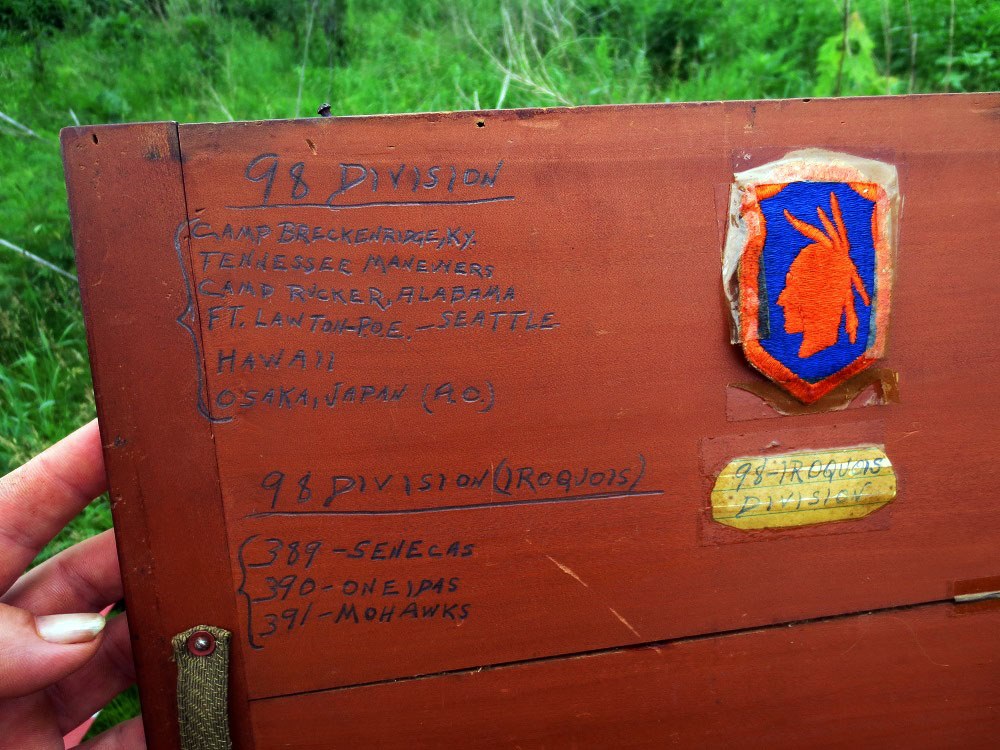 98 DIVISION
CAMP BRECKENRIDGE, KY.
TENNESSEE MANEWERS
CAMP RUCKER, ALABAMA
FT. LAWTON-P.O.E. - SEATTLE
HAWAII
OSAKA, JAPAN (A.O.)
98 DIVISION (IROQUOIS)
98-IROQUOIS
DIVISION
389 - SENECAS
390 - ONEIDAS
391 - MOHAWKS